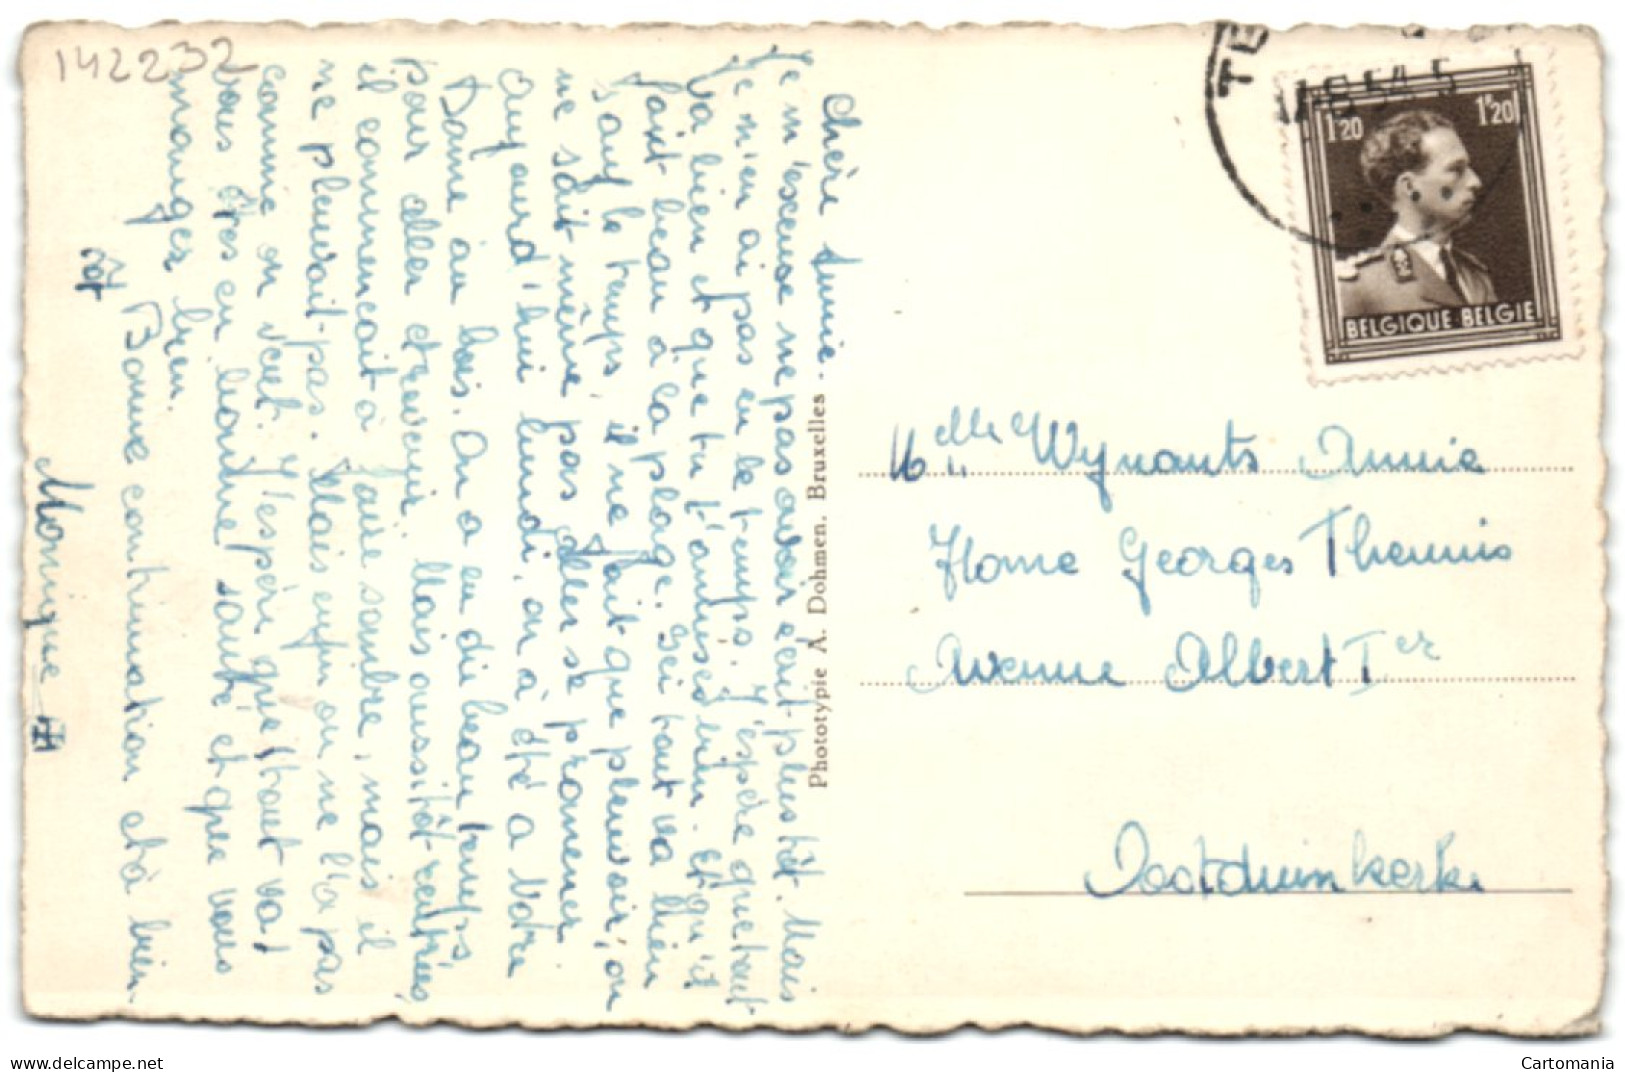 142232
Chère Annie.
Je m'excuse ne pas avoir écrit plus tôt. Mais
je n'en ai pas eu le temps. J'espère que tout
va bien et que tu t'amuses bien. Et qu'il
fait beau à la plage. Ici tout va bien
sauf le temps, il ne fait que pleuvoir, on
ne sait même pas aller se promener.
Aujourd'hui lundi, on à été a Notre
Dame au bois. On a eu du beau temps
pour aller et revenir. Mais aussitôt rentrées,
il commencait à faire sombre, mais il
ne pleuvait pas. Mais enfin on ne l'a pas
comme on veut. J'espère que tout va
vous êtes en bonne santé et que vous
mangez bien.
Bonne continuation et à bien-
tôt.
Monique
Phototypie A. Dohmen, Bruxelles
TE
54 5
1F20
1F20
BELGIQUE BELGIE
Melle Wynants Annie
Home Georges Theunis
Avenue Albert Ier
Oostduinkerke
delcampe.net
Cartomania